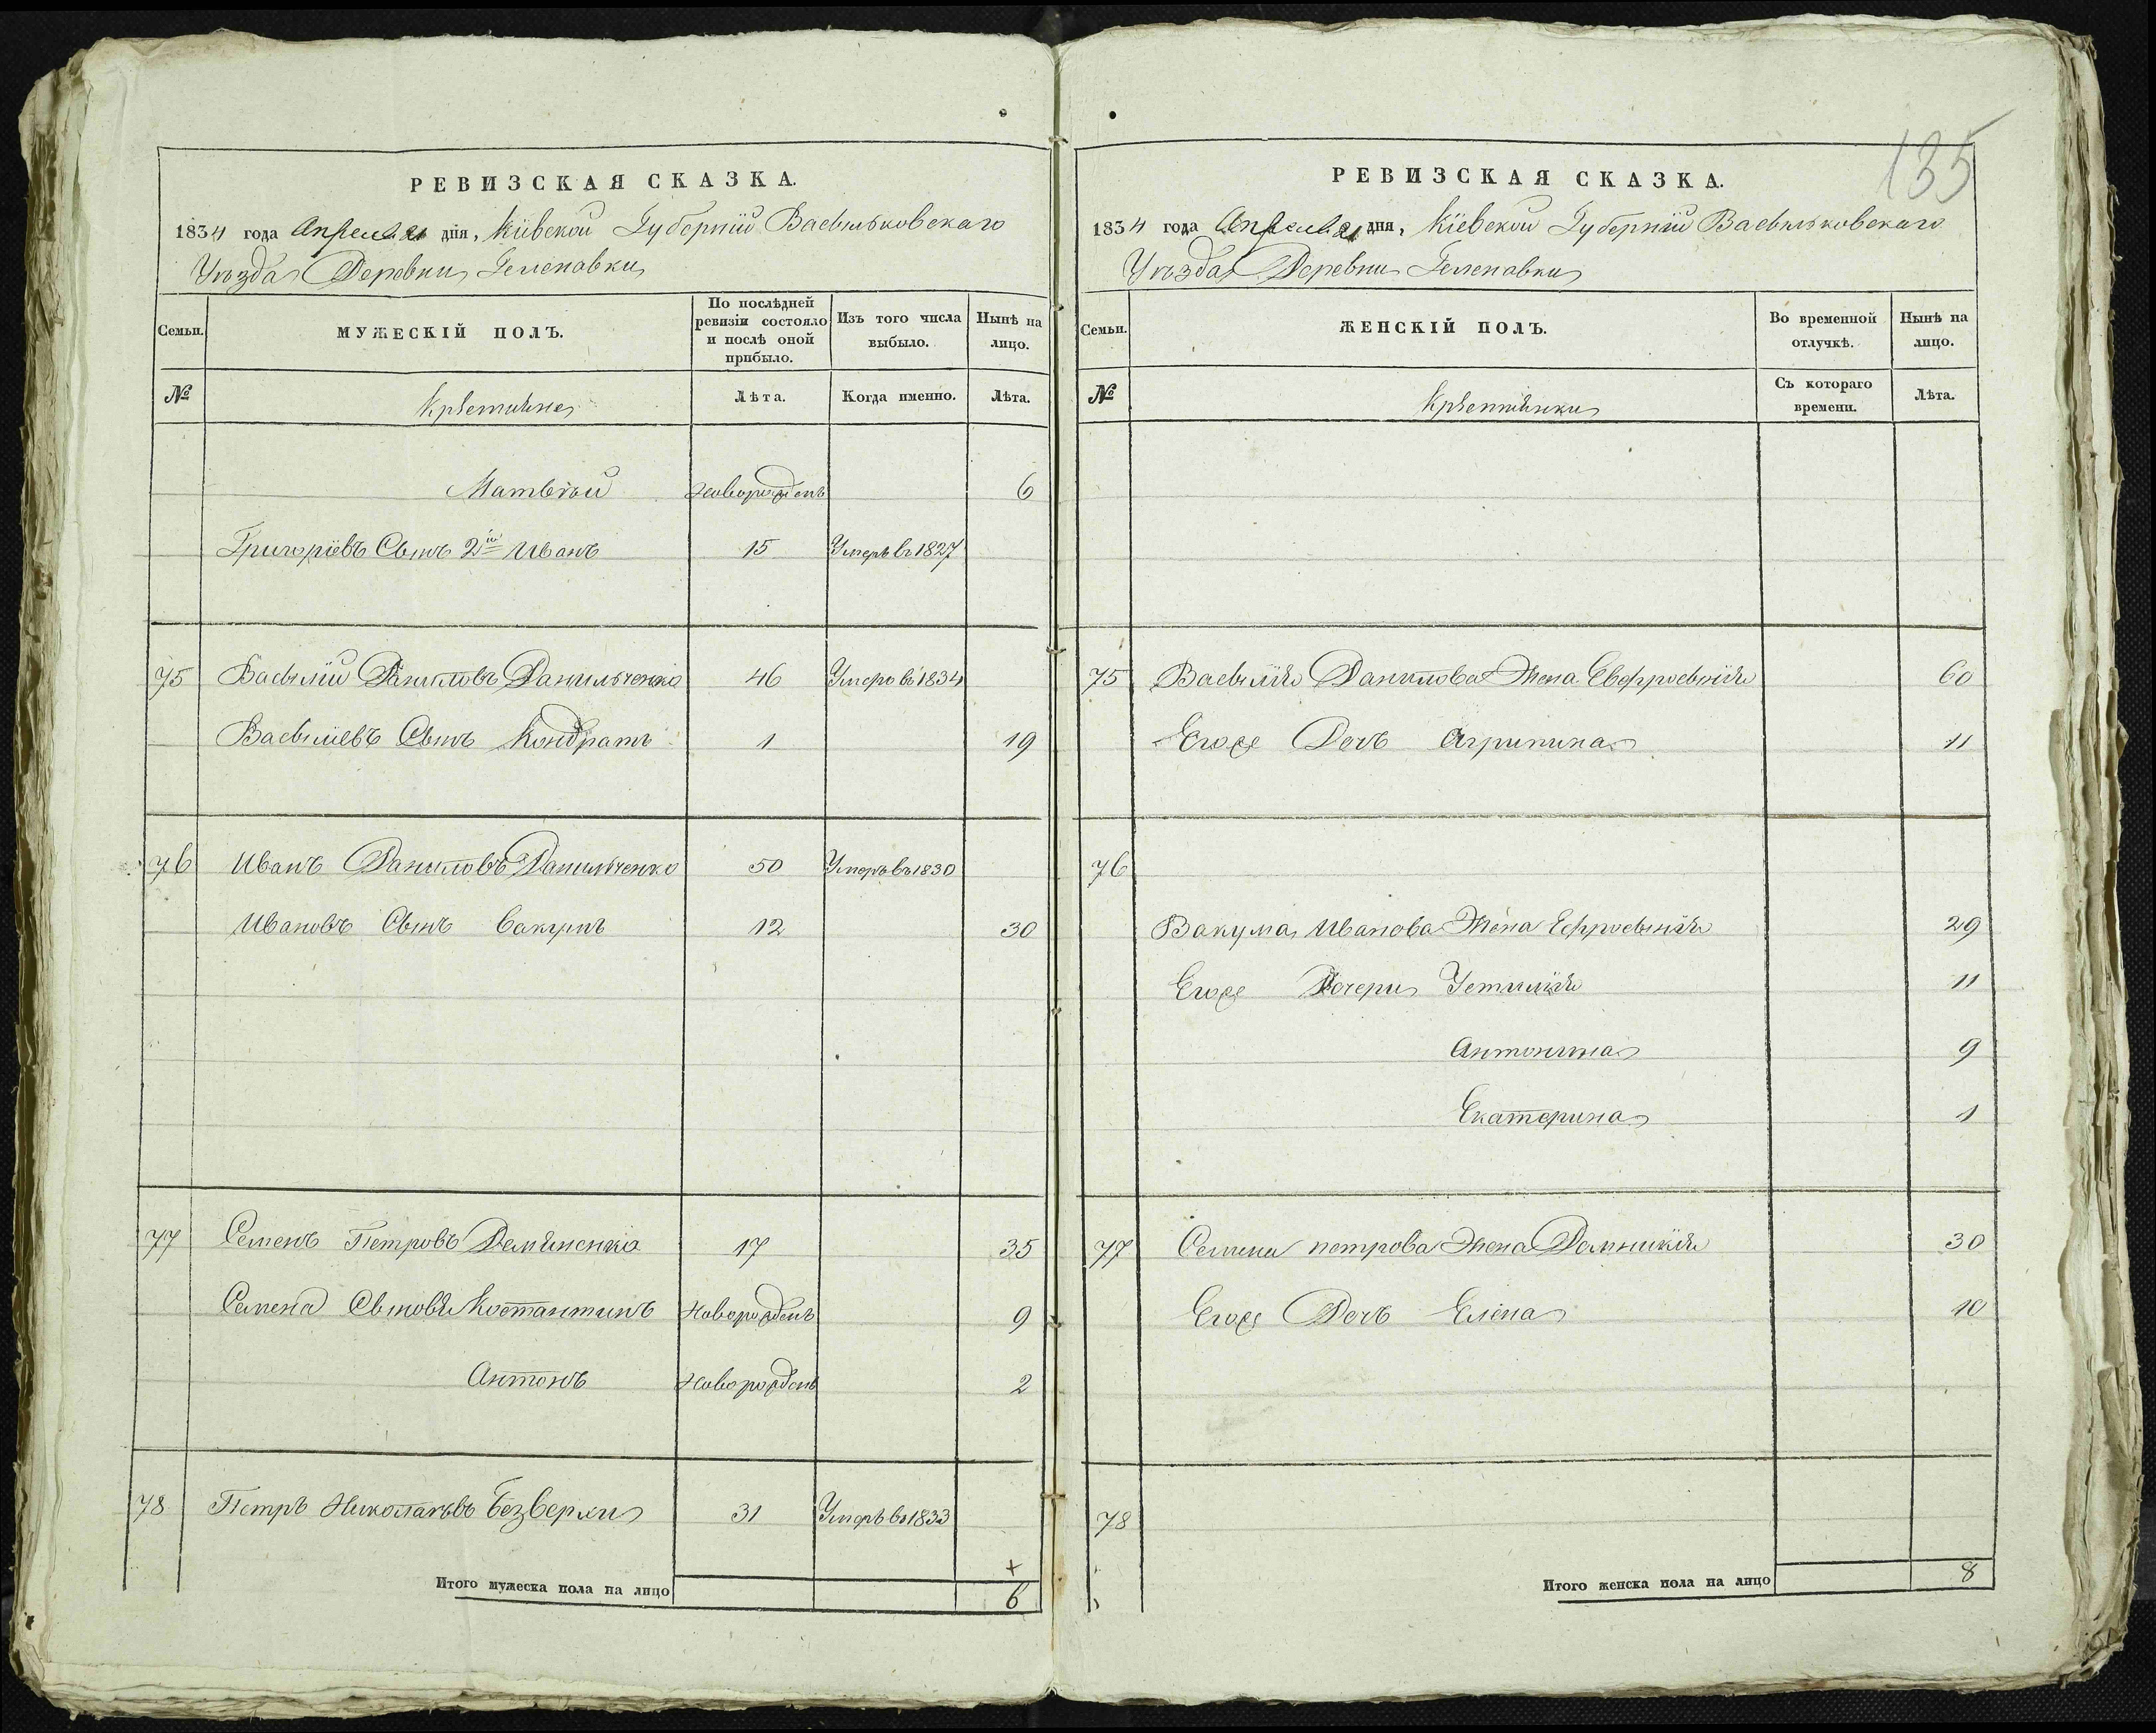 РЕВИЗСКАЯ СКАЗКА.
1834 года Апреля 21 дня, Кіевской Губерніи Васильковскаго
Уѣзда Деревни
Семьи. МУЖЕСКІЙ ПОЛЪ. По послѣдней ревизіи состояло и послѣ оной прибыло. Изъ того числа выбыло. Нынѣ на лицо.
№ Лѣта. Когда именно. Лѣта.
Матвѣй новорожденъ 6
Григоріевъ Сынъ 2й Иванъ 15 Умеръ въ 1827
75 Василій Даниловъ Данильченко 46 Умеръ въ 1834
Васильевъ Сынъ Кондратъ 1 19
76 Иванъ Даниловъ Данильченко 50 Умеръ въ 1830
Ивановъ Сынъ Вакумъ 12 30
77 Семенъ Петровъ 17 35
Семена Сыновья Костантинъ Новорожденъ 9
Антонъ Новорожденъ 2
78 Петръ Николаевъ Безверхи 31 Умеръ въ 1833
+
Итого мужеска пола на лицо 6
135
РЕВИЗСКАЯ СКАЗКА.
1834 года Апреля 21 дня, Кіевской Губерніи Васильковскаго
Уѣзда Деревни
Семьи. ЖЕНСКІЙ ПОЛЪ. Во временной отлучкѣ. Нынѣ на лицо.
№ Съ котораго времени. Лѣта.
75 Василія Данилова Жена Евфросинія 60
Егоже Дочь Агрипина 11
76
Вакума Иванова Жена Ефросинія 29
Егоже Дочери 11
Антонина 9
Екатерина 1
77 Семена петрова Жена Домникія 30
Егоже Дочь Елена 10
78
Итого женска пола на лицо 8